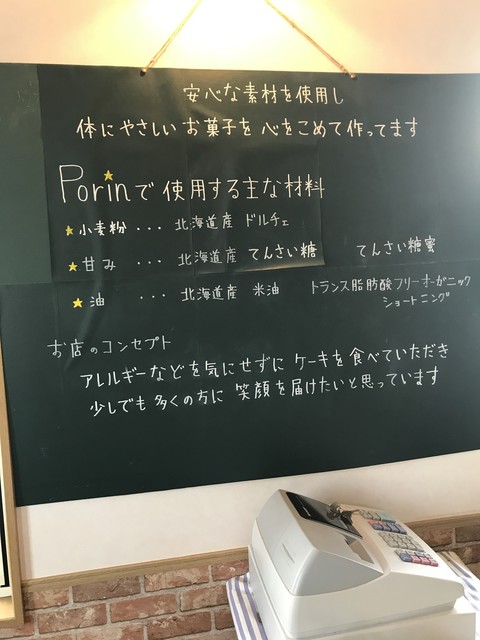 安心な素材を使用し
体にやさしいお菓子を心をこめて作ってます
Porinで使用する主な材料
★小麦粉 ・・・ 北海道産 ドルチェ
★甘み ・・・ 北海道産 てんさい糖 てんさい糖蜜
★油 ・・・ 北海道産 米油 トランス脂肪酸フリーオーガニック
ショートニング
お店のコンセプト
アレルギーなどを気にせずに ケーキを食べていただき
少しでも多くの方に 笑顔を届けたいと思っています